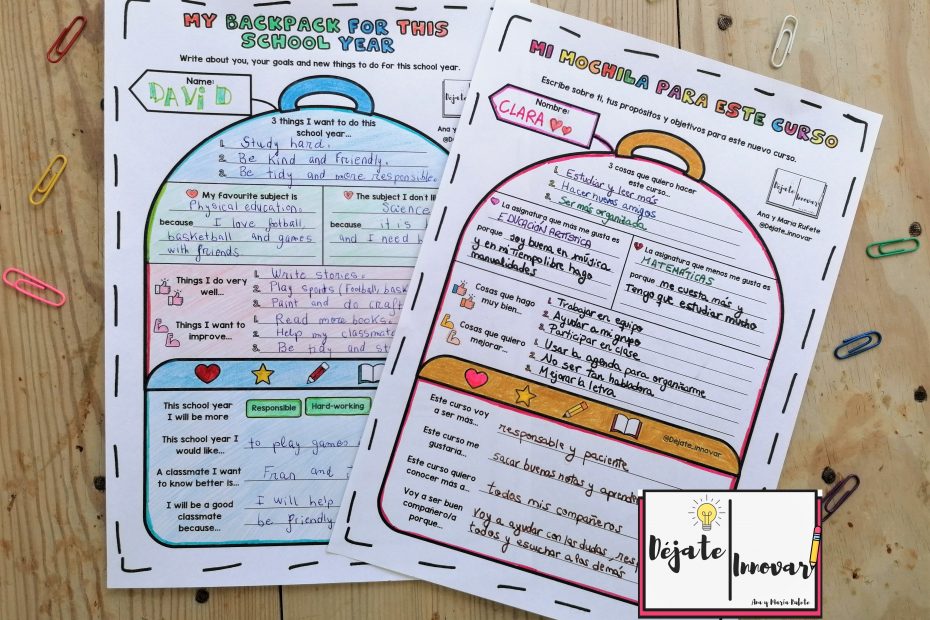 MY BACKPACK FOR THIS
SCHOOL YEAR
Write about you, your goals and new things to do for this school year.
Name:
DAViD
Déjate
Ana y
@De
3 things I want to do this
school year...
1. Study hard.
2. Be kind and friendly.
3. Be tidy and more responsible.
My favourite subject is
Physical education.
because I love football,
basketball and games
with friends
The subject I don't li
Science
because it is
and I need
Things I do very
well...
1. Write stories.
2. Play sports (football, bask
3. Paint and do craft
Things I want to
improve...
1. Read more books.
2. Help my classmate
3. Be tidy and st
This school year
I will be more
Responsible
Hard-working
This school year I
would like...
to play games
A classmate I want
to know better is...
Fran and
I will be a good
classmate
because...
I will help
be friendly
MI MOCHILA PARA ESTE CURSO
Escribe sobre ti, tus propósitos y objetivos para este nuevo curso.
Nombre:
CLARA
Déjate Innovar
Ana y María Rufete
@Dejate_innovar
3 cosas que quiero hacer
este curso...
1. Estudiar y leer más
2. Hacer nuevos amigos
3. Ser más organizada
La asignatura que más me gusta es
EDUCACIÓN ARTÍSTICA
porque soy buena en música
y en mi tiempo libre hago
manualidades
La asignatura que menos me gusta es
MATEMÁTICAS
porque me cuesta más y
Tengo que estudiar mucho
Cosas que hago
muy bien...
1. Trabajar en equipo
2. Ayudar a mi grupo
3. Participar en clase
Cosas que quiero
mejorar...
1. Usar la agenda para organizarme
2. No ser tan habladora
3. Mejorar la letra
@Dejate_innovar
Este curso voy
a ser más...
responsable y paciente
Este curso me
gustaría...
sacar buenas notas y aprende
Este curso quiero
conocer más a...
todos mis compañeros
Voy a ser buen
compañero/a
porque...
voy a ayudar con las dudas, resp
todos y escuchar a los demás
Déjate Innovar
Ana y María Rufete